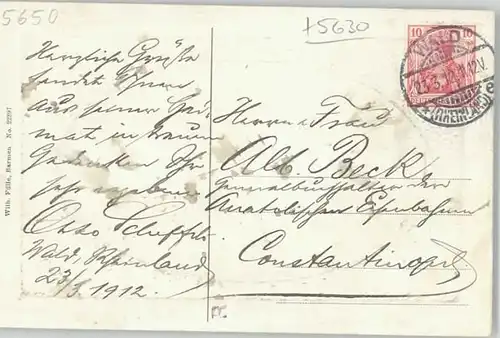 5650
+5630
10 10
WALD
23.3.12. 11-12V.
(RHEINLAND)
Herzliche Grüße
sendet Ihnen
aus seiner Hei-
mat in treuem
Gedenken Ihr
sehr ergebener
Otto
Wald, Rheinland
23/3. 1912.
Herrn u. Frau
Alb. Beck
Generalbuchhalter der
Anatolischen Eisenbahnen
Constantinopel
Wilh. Fülle, Barmen. No. 22297